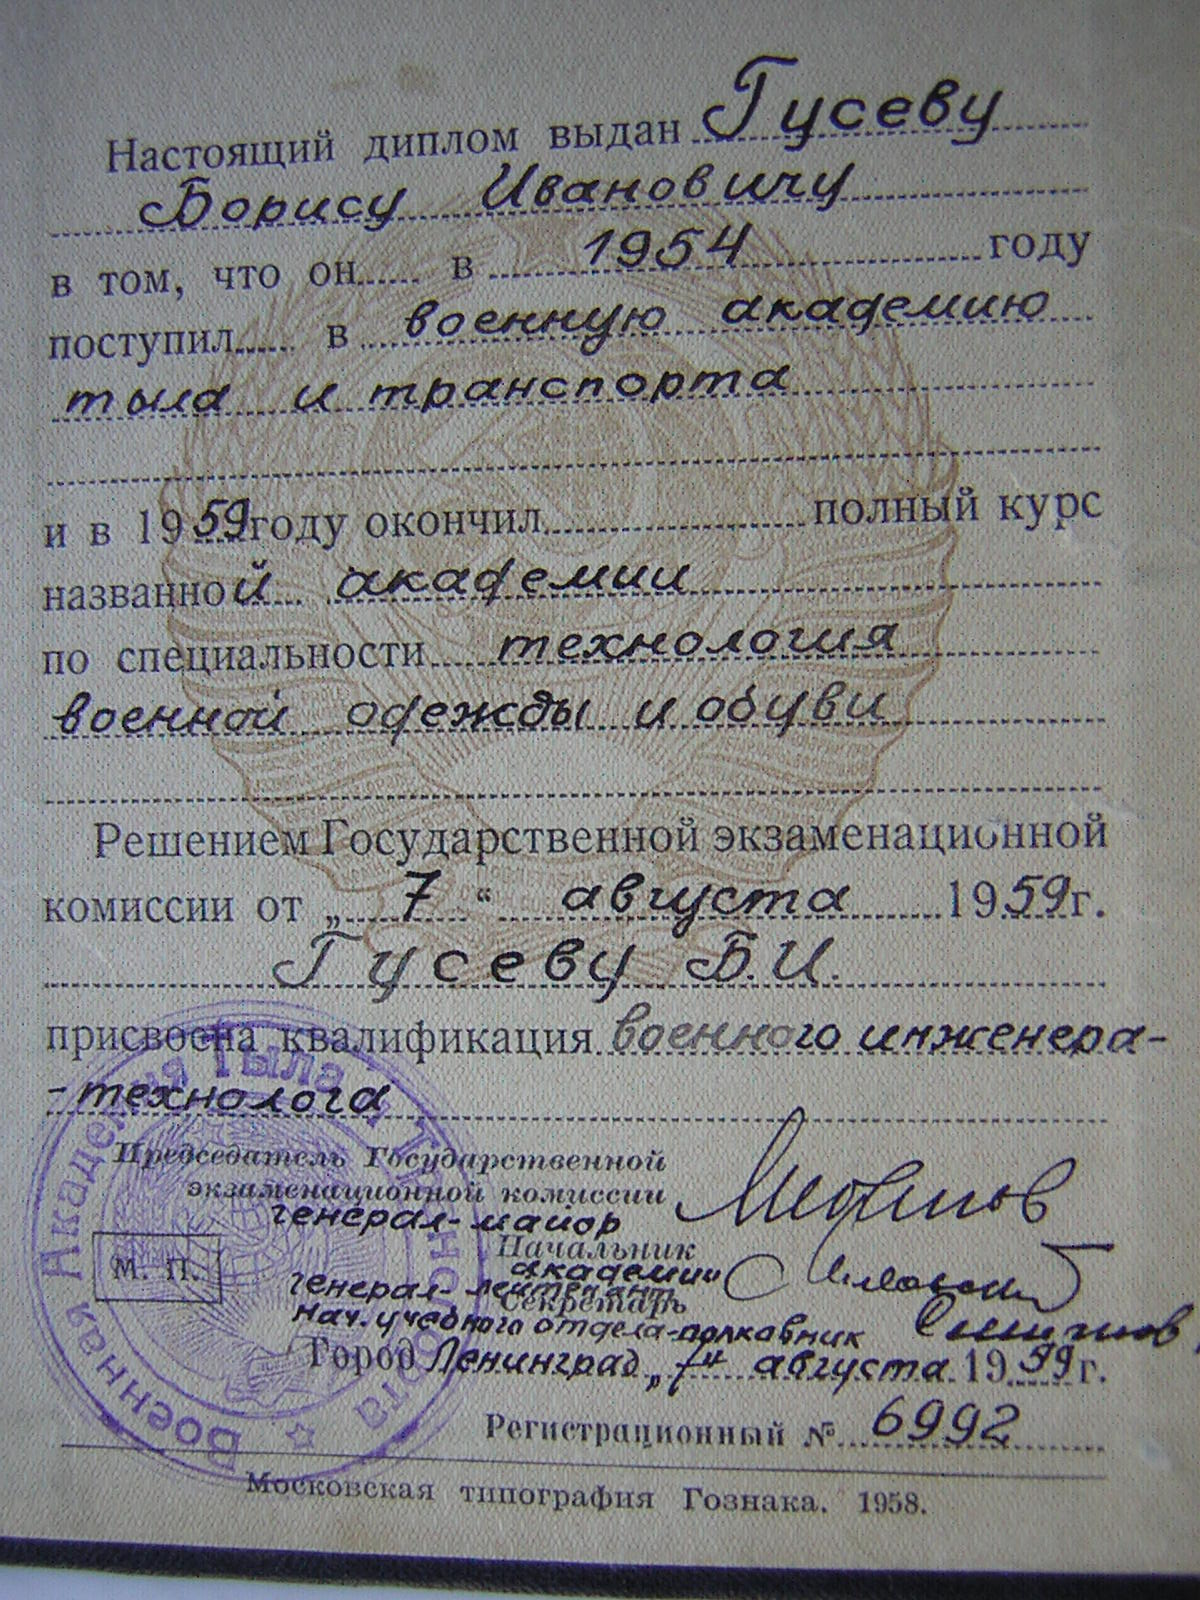 Настоящий диплом выдан Гусеву
Борису Ивановичу
в том, что он в 1954 году
поступил в военную академию
тыла и транспорта
и в 1959 году окончил полный курс
названной академии
по специальности технология
военной одежды и обуви
Решением Государственной экзаменационной
комиссии от „ 7 “ августа 1959 г.
Гусеву Б.И.
присвоена квалификация военного инженера-
-технолога
Председатель Государственной
экзаменационной комиссии
генерал-майор
Начальник
академии
генерал-лейтенант
Секретарь
Нач. учебного отдела-полковник
М. П.
Город Ленинград „7“ августа 1959 г.
Регистрационный № 6992
Московская типография Гознака. 1958.
Военная Академия Тыла и Транспорта